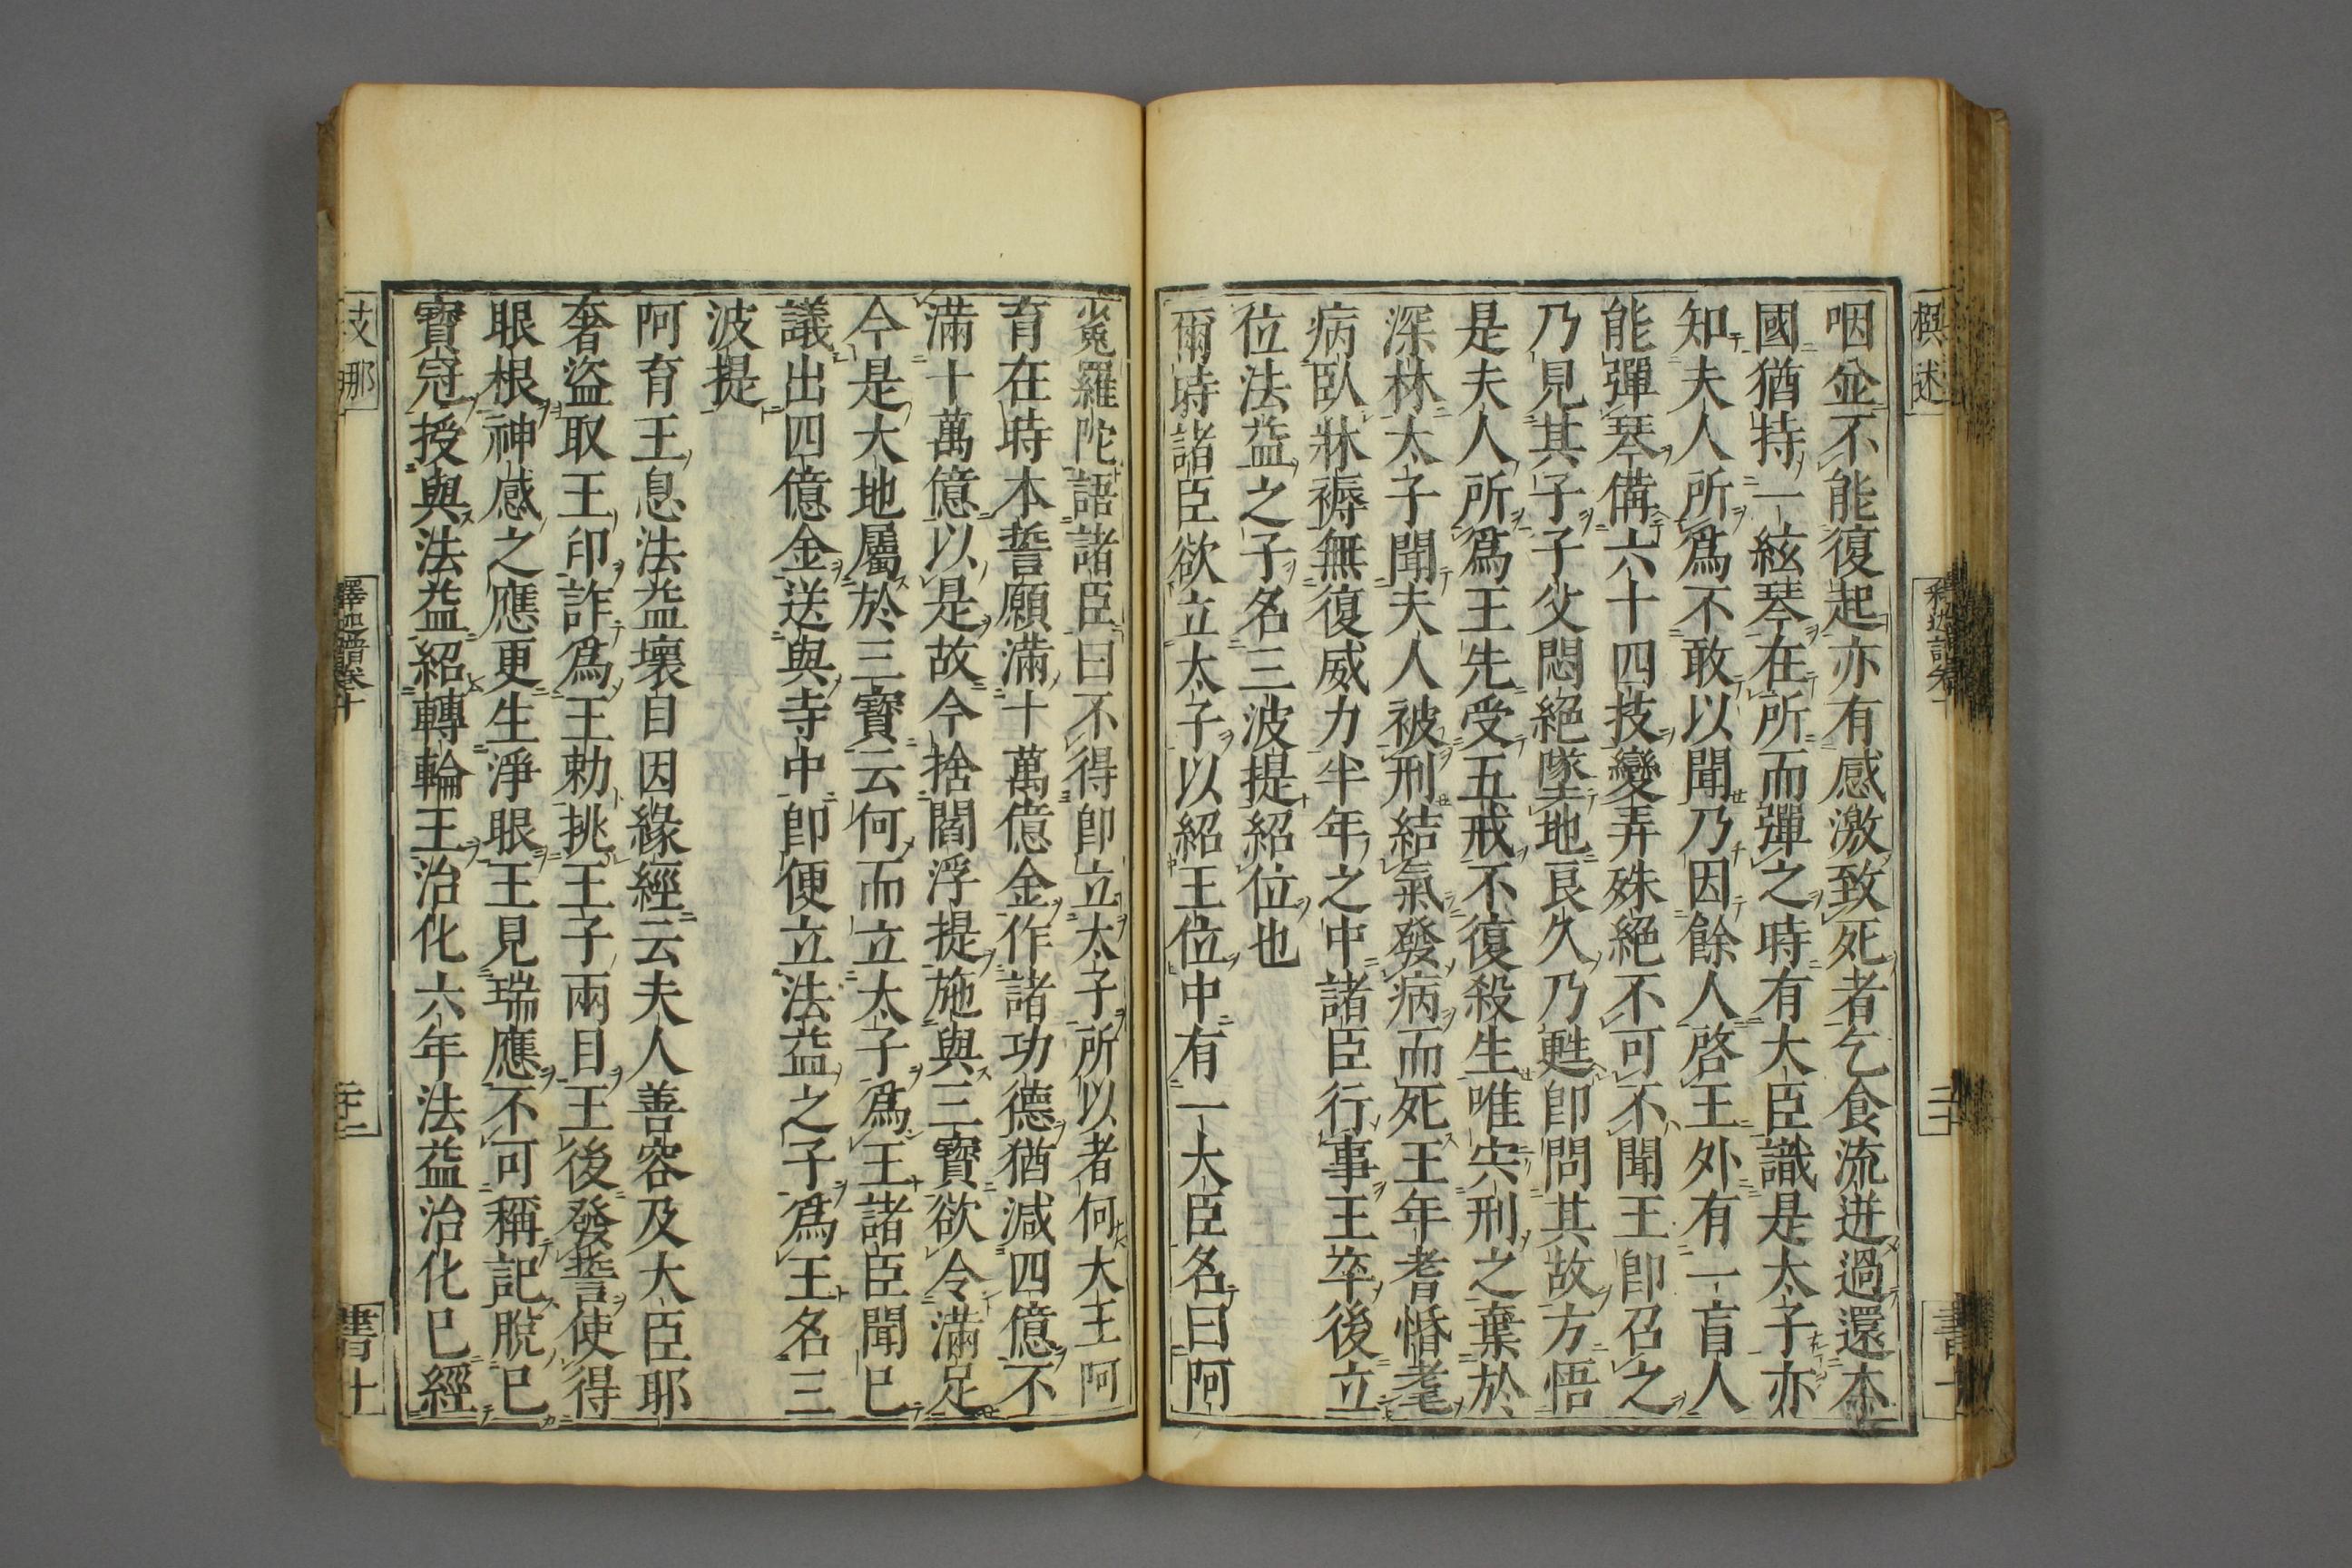 咽並不能復起亦有感激致死者乞食流迸過還本
國猶特一絃琴在所而彈之時有大臣識是太子亦
知夫人所爲不敢以聞乃因餘人啓王外有一盲人
能彈琴備六十四技變弄殊絕不可不聞王即召之
乃見其子子父悶絕墜地良久乃甦即問其故方悟
是夫人所爲王先受五戒不復殺生唯宍刑之棄於
深林太子聞夫人被刑結氣發病而死王年耆惛耄
病臥牀褥無復威力半年之中諸臣行事王卒後立
位法益之子名三波提紹位也
爾時諸臣欲立太子以紹王位中有一大臣名曰阿
㝹羅陀語諸臣曰不得即立太子所以者何大王阿
育在時本誓願滿十萬億金作諸功德猶減四億不
滿十萬億以是故今捨閻浮提施與三寶欲令滿足
今是大地屬於三寶云何而立太子爲王諸臣聞已
議出四億金送與寺中即便立法益之子爲王名三
波提
阿育王息法益壞目因緣經云夫人善容及大臣耶
奢盜取王印詐爲王勅挑王子兩目王後發誓使得
眼根神感之應更生淨眼王見瑞應不可稱記脫已
寶冠授與法益紹轉輪王治化六年法益治化已經
撰述
支那
釋迦譜卷十
二十二
書十